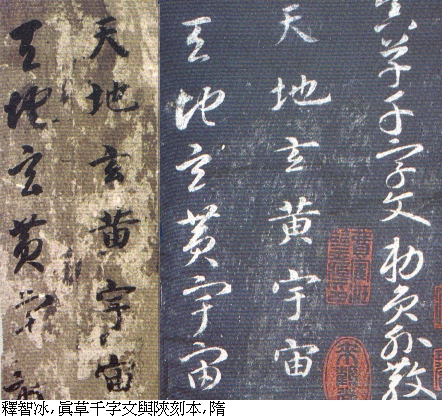 真草千字文 勅員外散
天地玄黃宇宙
天地玄黃宇宙
天地玄黃宇宙
天地玄黃宇宙
釋智冰,眞草千字文與陝刻本,隋